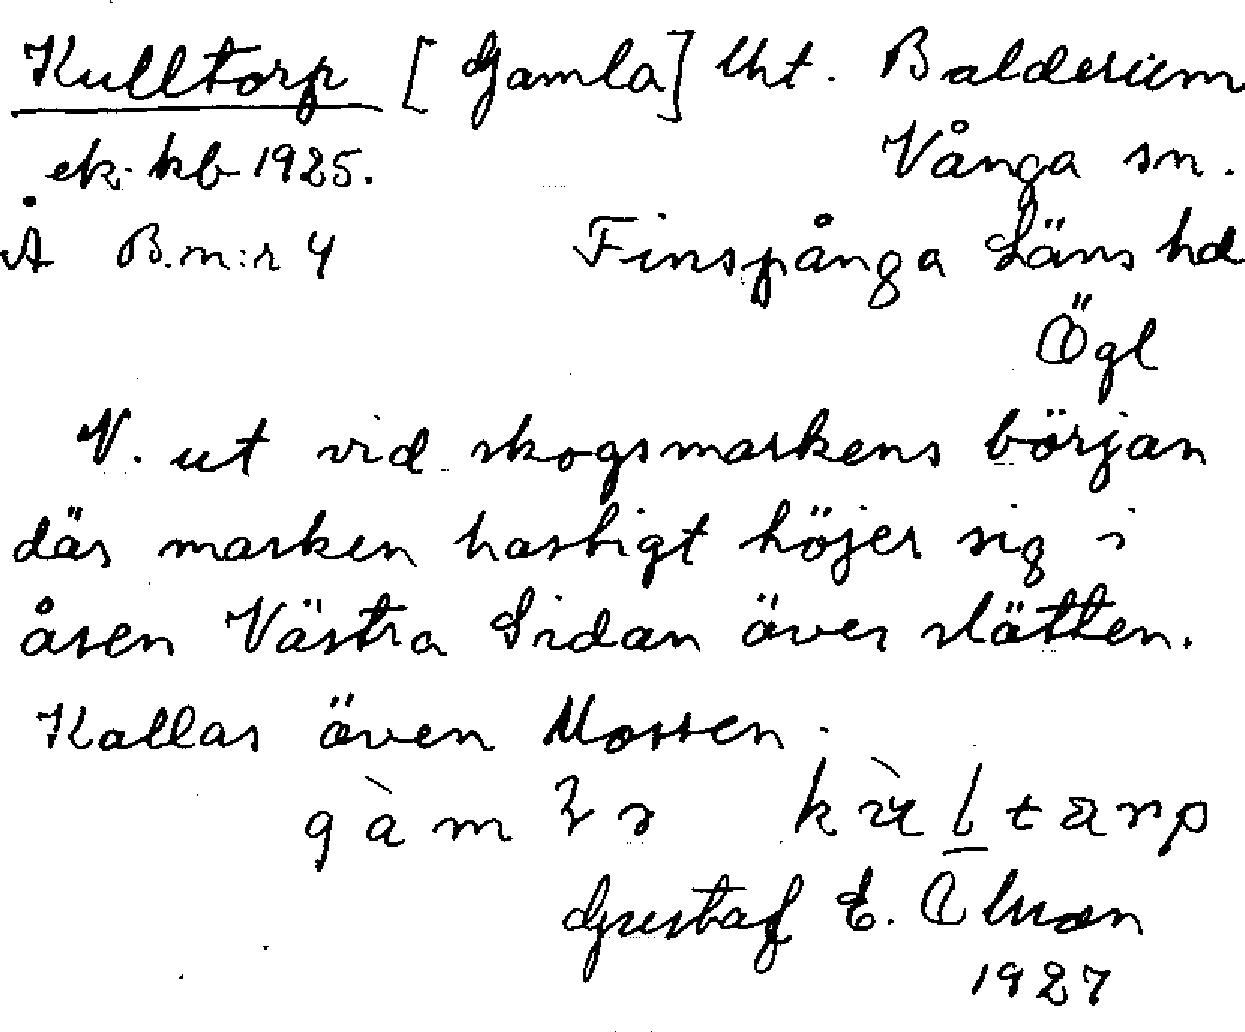 Kulltorp [Gamla] lht. Balderum
ek. kb 1925. Vånga sn.
Å B.m:r 4 Finspånga Läns hd
Ögl
N. ut vid skogsmarkens början
där marken hastigt höjer sig i
åsen Västra Sidan över slätten.
Kallas även Mossen.
Gustaf E. Olsson
1927